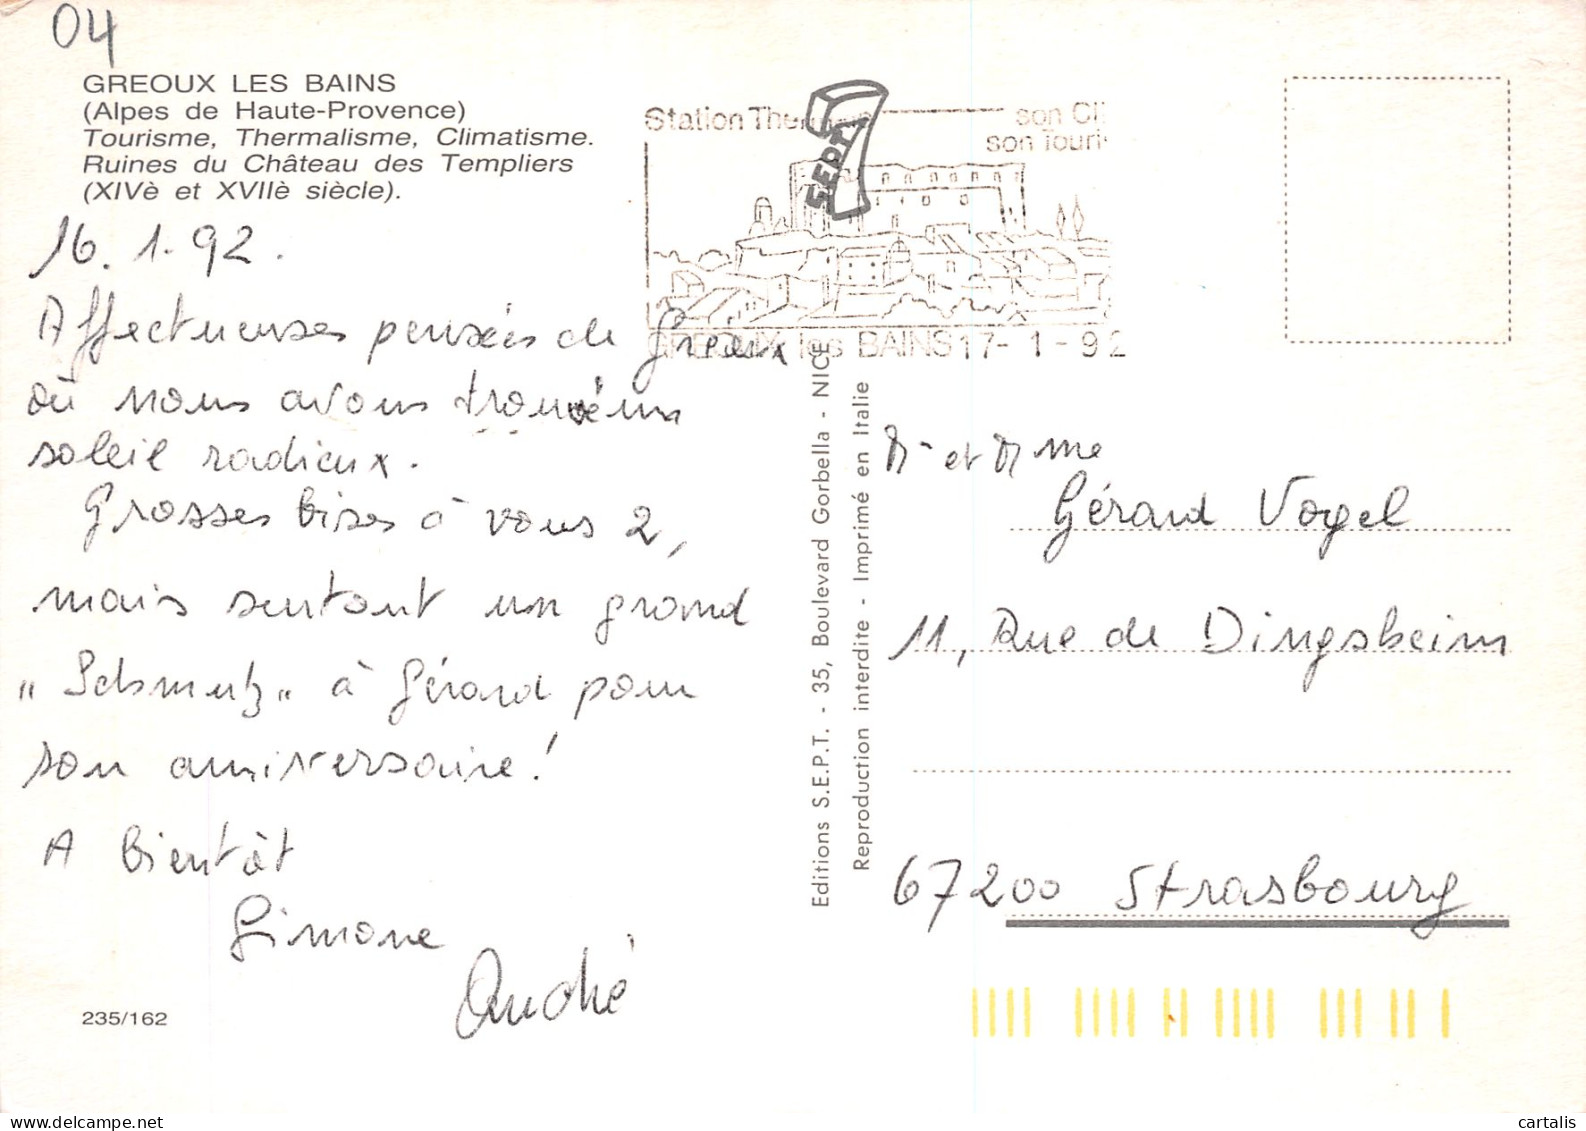 04
GREOUX LES BAINS
(Alpes de Haute-Provence)
Tourisme, Thermalisme, Climatisme.
Ruines du Château des Templiers
(XIVè et XVIIè siècle).
16. 1. 92.
Affectueuses pensées de Gréoux
où nous avons trouvé un
soleil radieux.
Grosses bises à vous 2,
mais surtout un grand
"Schmutz" à Gérard pour
son anniversaire!
A bientôt
Simone
André
235/162
Station Ther
son Cli
son Touri
SEPT
GREOUX les BAINS 17-1-92
Editions S.E.P.T. - 35, Boulevard Gorbella - NICE
Reproduction interdite - Imprimé en Italie
Mr et Mme
Gérard Vogel
11, Rue de Dingsheim
67200 Strasbourg
cartalis